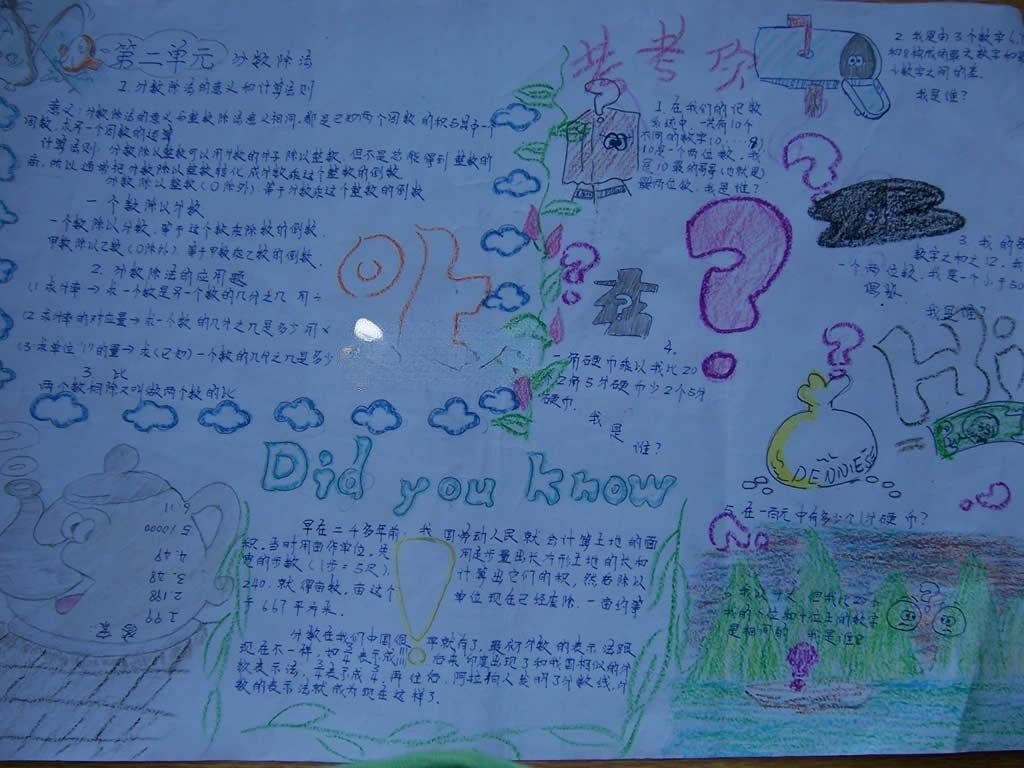 第二单元 分数除法
1.分数除法的意义和计算法则
意义:分数除法的意义与整数除法意义相同,都是已知两个因数的积与其中一个
因数,求另一个因数的运算
计算法则:分数除以整数可以用分数的分子除以整数,但不是总能得到整数的
商,所以通常把分数除以整数转化成分数乘这个整数的倒数
分数除以整数(0除外)等于分数乘这个整数的倒数
一个数除以分数
一个数除以分数,等于这个数乘除数的倒数.
甲数除以乙数(0除外),等于甲数乘乙数的倒数.
2.分数除法的应用题
(1.求分率→求一个数是另一个数的几分之几 用÷
(2.求分率的对应量→求一个数的几分之几是多少 用×
(3.求单位"1"的量→求(已知)一个数的几分之几是多少
3.比
两个数相除又叫做两个数的比
考考你
1.在我们的记数
系统中,一共有10个
不同的数字(0......9)
10是一个两位数,我
是10最的哥哥(也就是)
最两位数,我是谁?
2.我是由3个数字
少数字之间的差.
我是谁?
3.我的
数字之和是12,我
一个两位数,我是一个小于50
偶数.
我是谁?
4.
一角硬币乘以我比20
个2角5分硬币少2个5分
硬币.
我
是
谁?
Hi
DENNIES
5.在一百元中有多少个1分硬币?
6.我以十之,但我比20大
我的个位和十位上的数字
是相同的 我是谁?
Did you know
早在二千多年前,我国劳动人民就会计算土地的面
积.当时用亩作单位,先用步量出长方形土地的长和
宽的步数(1步=5尺),计算出它们的积,然后除以
240.就得亩数,亩这个单位现在已经废除.一亩约等
于667平方米.
分数在我们中国很早就有了,最初分数的表示法跟
现在不一样,如3/4表示成 后来印度出现了和我国相似的分
数表示法,3/4表示成3 4,再往后,阿拉伯人发明了分数线,分
数的表示法就成为现在这样了.
答案
1.99
2.198
3.28
4.49
5.10000
6.11